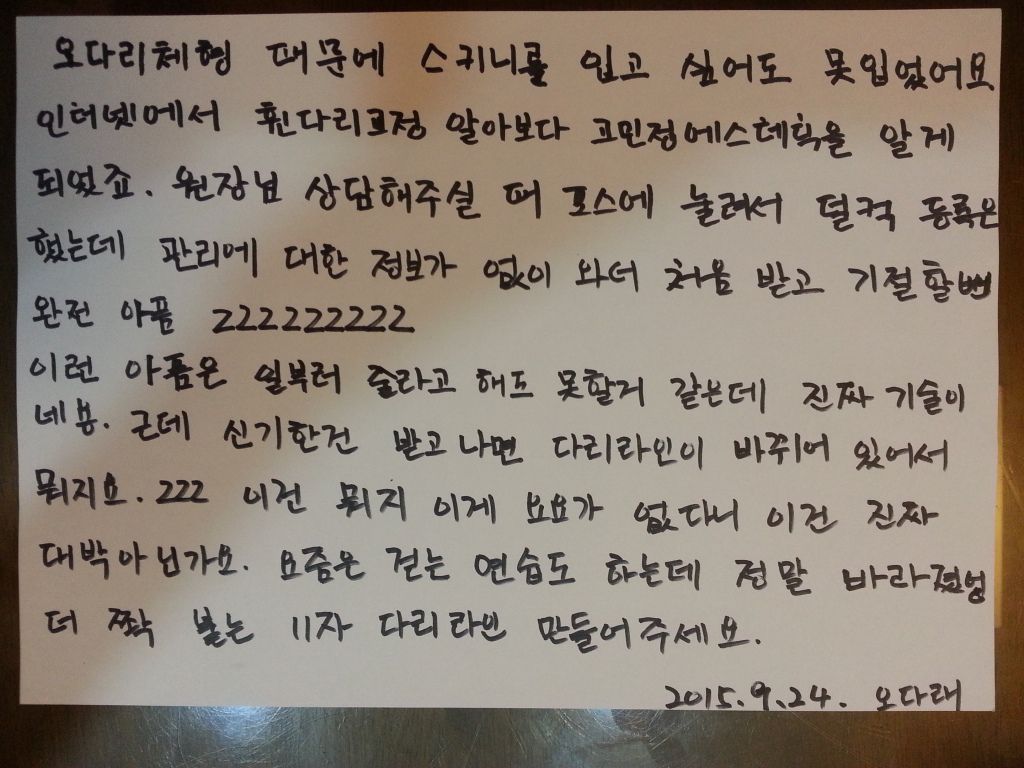 오다리체형 때문에 스키니를 입고 싶어도 못입었어요
인터넷에서 휜다리교정 알아보다 고민정에스테틱을 알게
되었죠. 원장님 상담해주실 때 포스에 눌려서 덜컥 등록은
했는데 관리에 대한 정보가 없이 와서 처음 받고 기절할뻔
완전 아픔 ZZZZZZZZZ
이런 아픔은 일부러 줄라고 해도 못할거 같은데 진짜 기술이
네용. 근데 신기한건 받고나면 다리라인이 바뀌어 있어서
뭐지요. ZZZ 이건 뭐지 이게 요요가 없다니 이건 진짜
대박아닌가요. 요즘은 걷는 연습도 하는데 정말 바라졌엉
더 짝 붙는 11자 다리라인 만들어주세요.
2015.9.24. 오다래